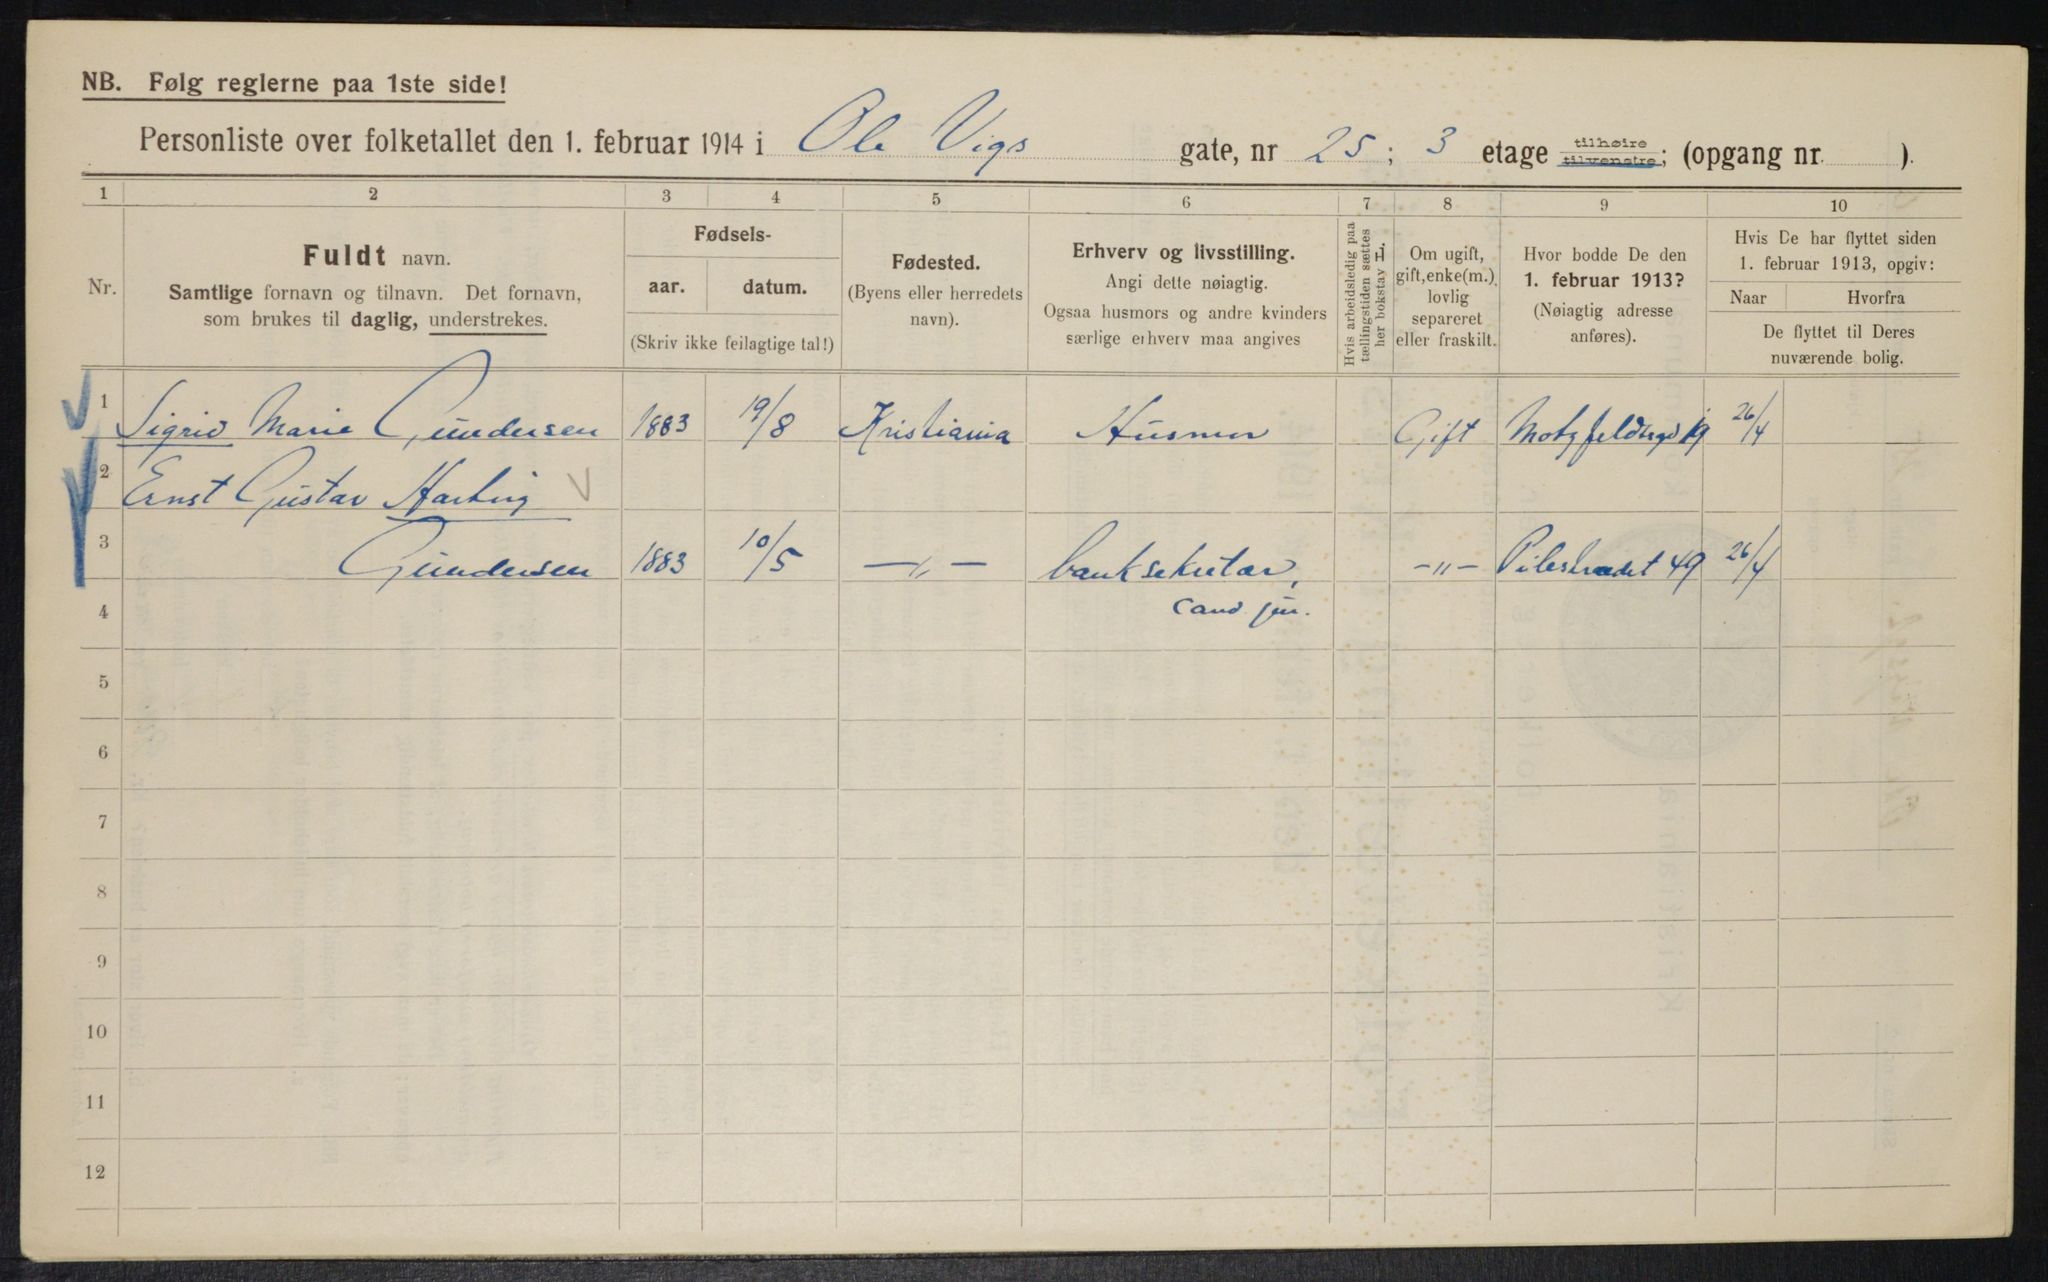 NB. Følg reglerne paa 1ste side!
Personliste over folketallet den 1. februar 1914 i Ole Vigs gate, nr 25; 3 etage tilhøire tilvenstre; (opgang nr. ).
1 2 3 4 5 6 7 8 9 10
Nr.
Fuldt navn.
Samtlige fornavn og tilnavn. Det fornavn,
som brukes til daglig, understrekes.
Fødsels-
aar. datum.
(Skriv ikke feilagtige tal!)
Fødested.
(Byens eller herredets
navn).
Erhverv og livsstilling.
Angi dette nøiagtig.
Ogsaa husmors og andre kvinders
særlige erhverv maa angives
Hvis arbeidsledig paa
tællingstiden sættes
her bokstav L.
Om ugift,
gift, enke(m.),
lovlig
separeret
eller fraskilt.
Hvor bodde De den
1. februar 1913?
(Nøiagtig adresse
anføres).
Hvis De har flyttet siden
1. februar 1913, opgiv:
Naar Hvorfra
De flyttet til Deres
nuværende bolig.
1 Sigrid Marie Gundersen 1883 19/8 Kristiania Husmor Gift Motzfeldtsgd 19 26/4
2 Ernst Gustav Hartvig
3 Gundersen 1883 10/5 —„— banksekretær, -„- Pilestrædet 49 26/4
4 cand. jur.
5
6
7
8
9
10
11
12